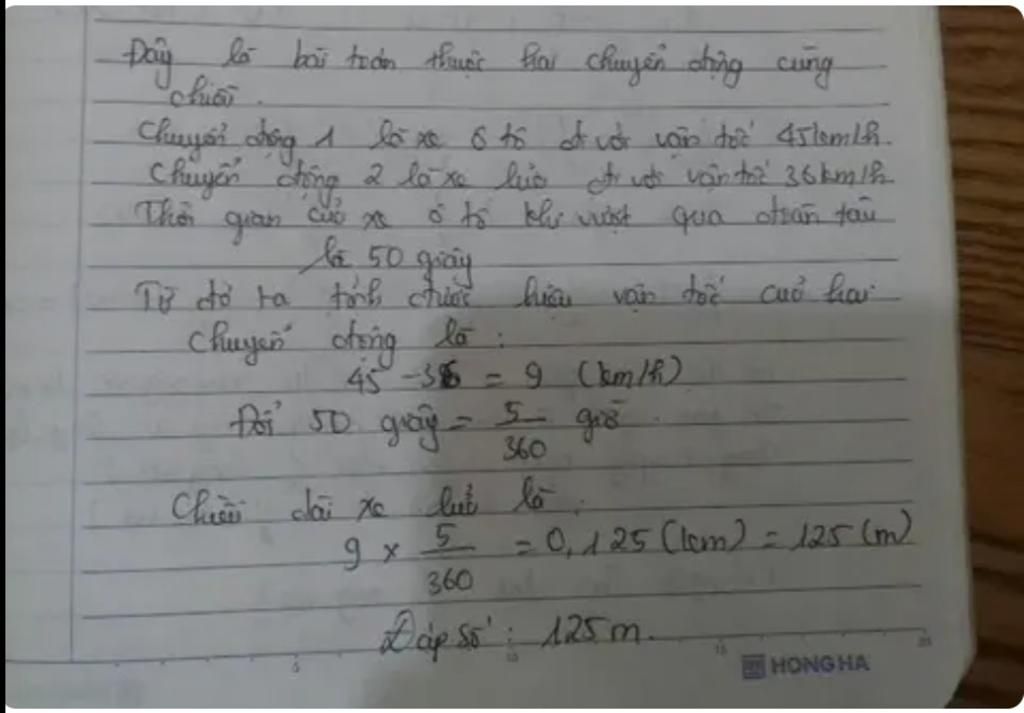 Đây là bài toán thuộc hai chuyển động cùng
chiều.
Chuyển động 1 là xe ô tô đi với vận tốc 45km/h.
Chuyển động 2 là xe lửa đi với vận tốc 36km/h
Thời gian của xe ô tô khi vượt qua đoàn tàu
là 50 giây
Từ đó ra tính được hiệu vận tốc của hai
chuyển động là:
45 - 36 = 9 (km/h)
Đổi 50 giây = 5/360 giờ.
Chiều dài xe lửa là:
9 x 5/360 = 0,125 (km) = 125 (m)
Đáp số: 125m.
5 10 15 20
HONG HA